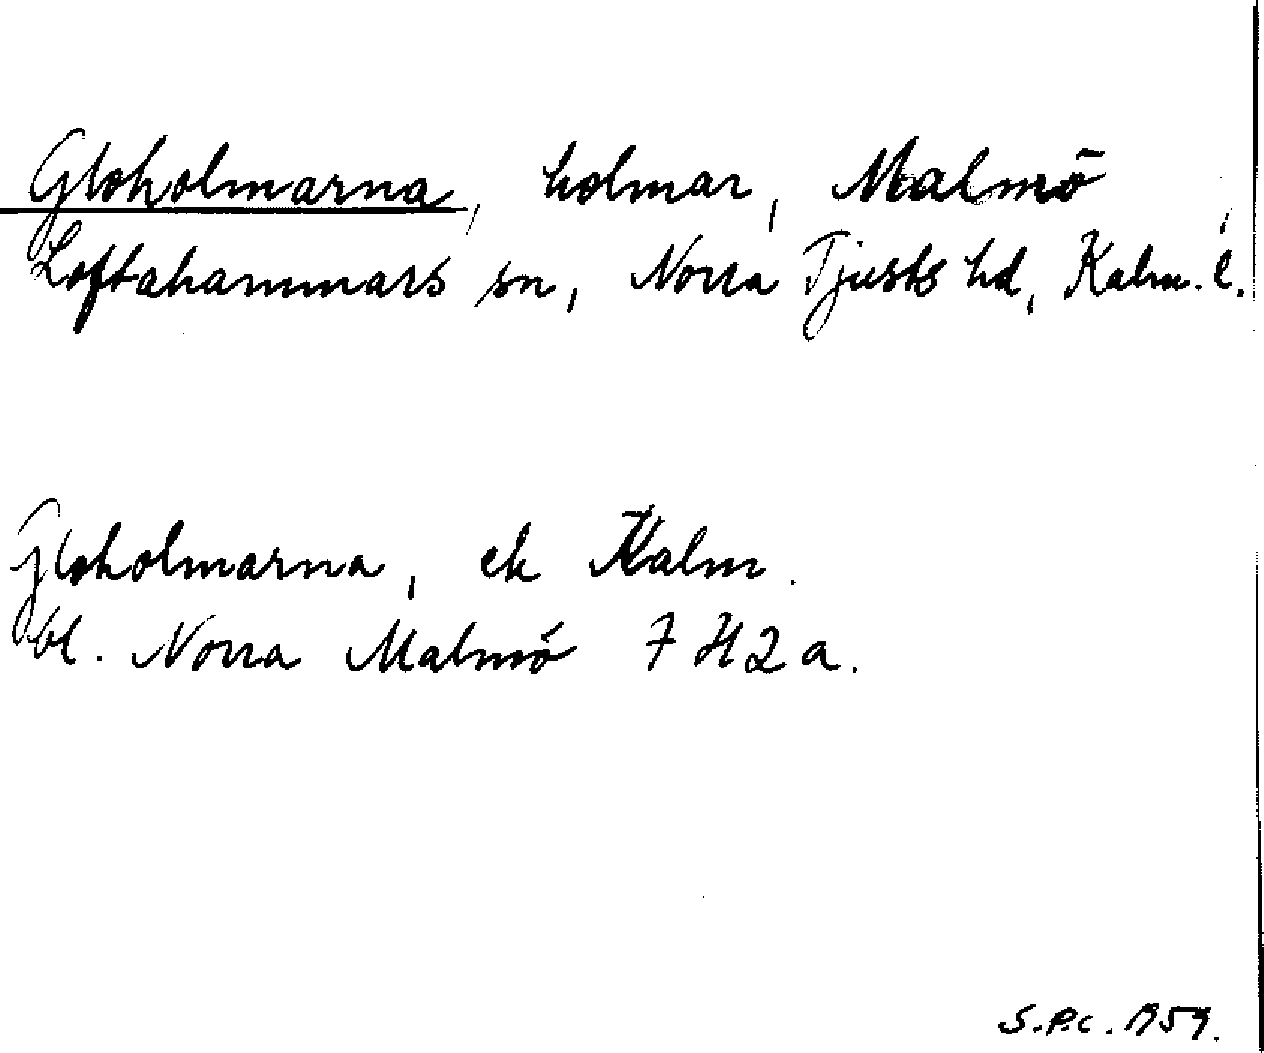 Gloholmarna, holmar, Malmö,
Loftahammars sn, Norra Tjusts hd, Kalm. l.
Gloholmarna, ek Kalm.
bl. Norra Malmö 7 H 2 a.
S.P.C. 1959.